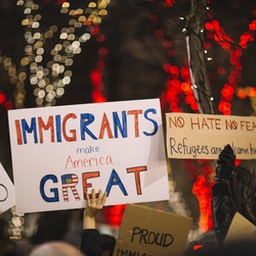 IMMIGRANTS
make
America
GREAT
NO HATE NO FEA
Refugees are
PROUD